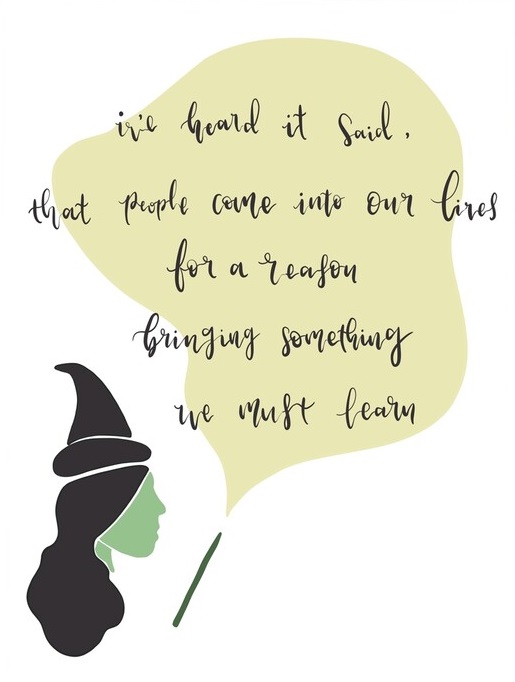 i've heard it said,
that people come into our lives
for a reason
bringing something
we must learn